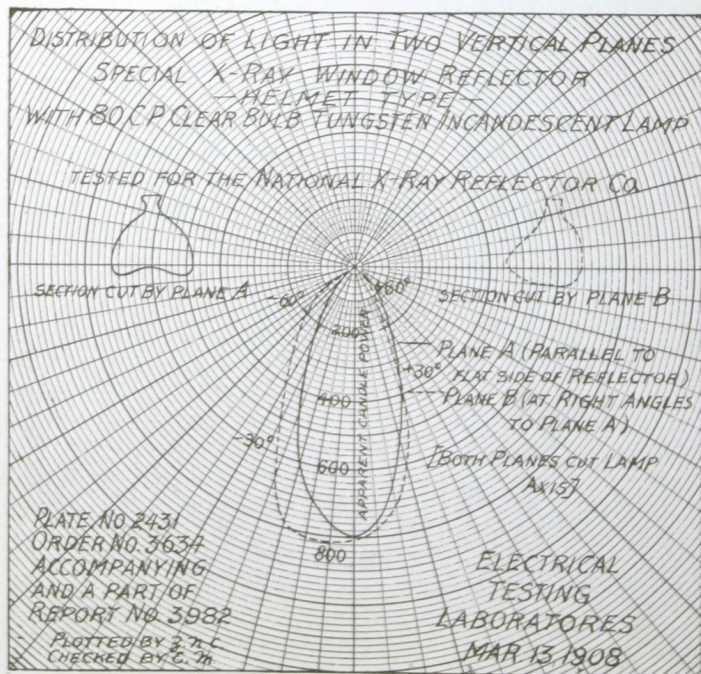 DISTRIBUTION OF LIGHT IN TWO VERTICAL PLANES
SPECIAL X-RAY WINDOW REFLECTOR
—HELMET TYPE—
WITH 80 C.P. CLEAR BULB TUNGSTEN INCANDESCENT LAMP
TESTED FOR THE NATIONAL X-RAY REFLECTOR CO.
SECTION CUT BY PLANE A
SECTION CUT BY PLANE B
-60°
+60°
200
PLANE A (PARALLEL TO
FLAT SIDE OF REFLECTOR)
+30°
400
PLANE B (AT RIGHT ANGLES
TO PLANE A)
-30°
600
[BOTH PLANES CUT LAMP
AXIS]
APPARENT CANDLE POWER
800
PLATE NO. 2431
ORDER NO. 3634
ACCOMPANYING
AND A PART OF
REPORT NO. 3982
PLOTTED BY
CHECKED BY
ELECTRICAL
TESTING
LABORATORES
MAR 13 1908